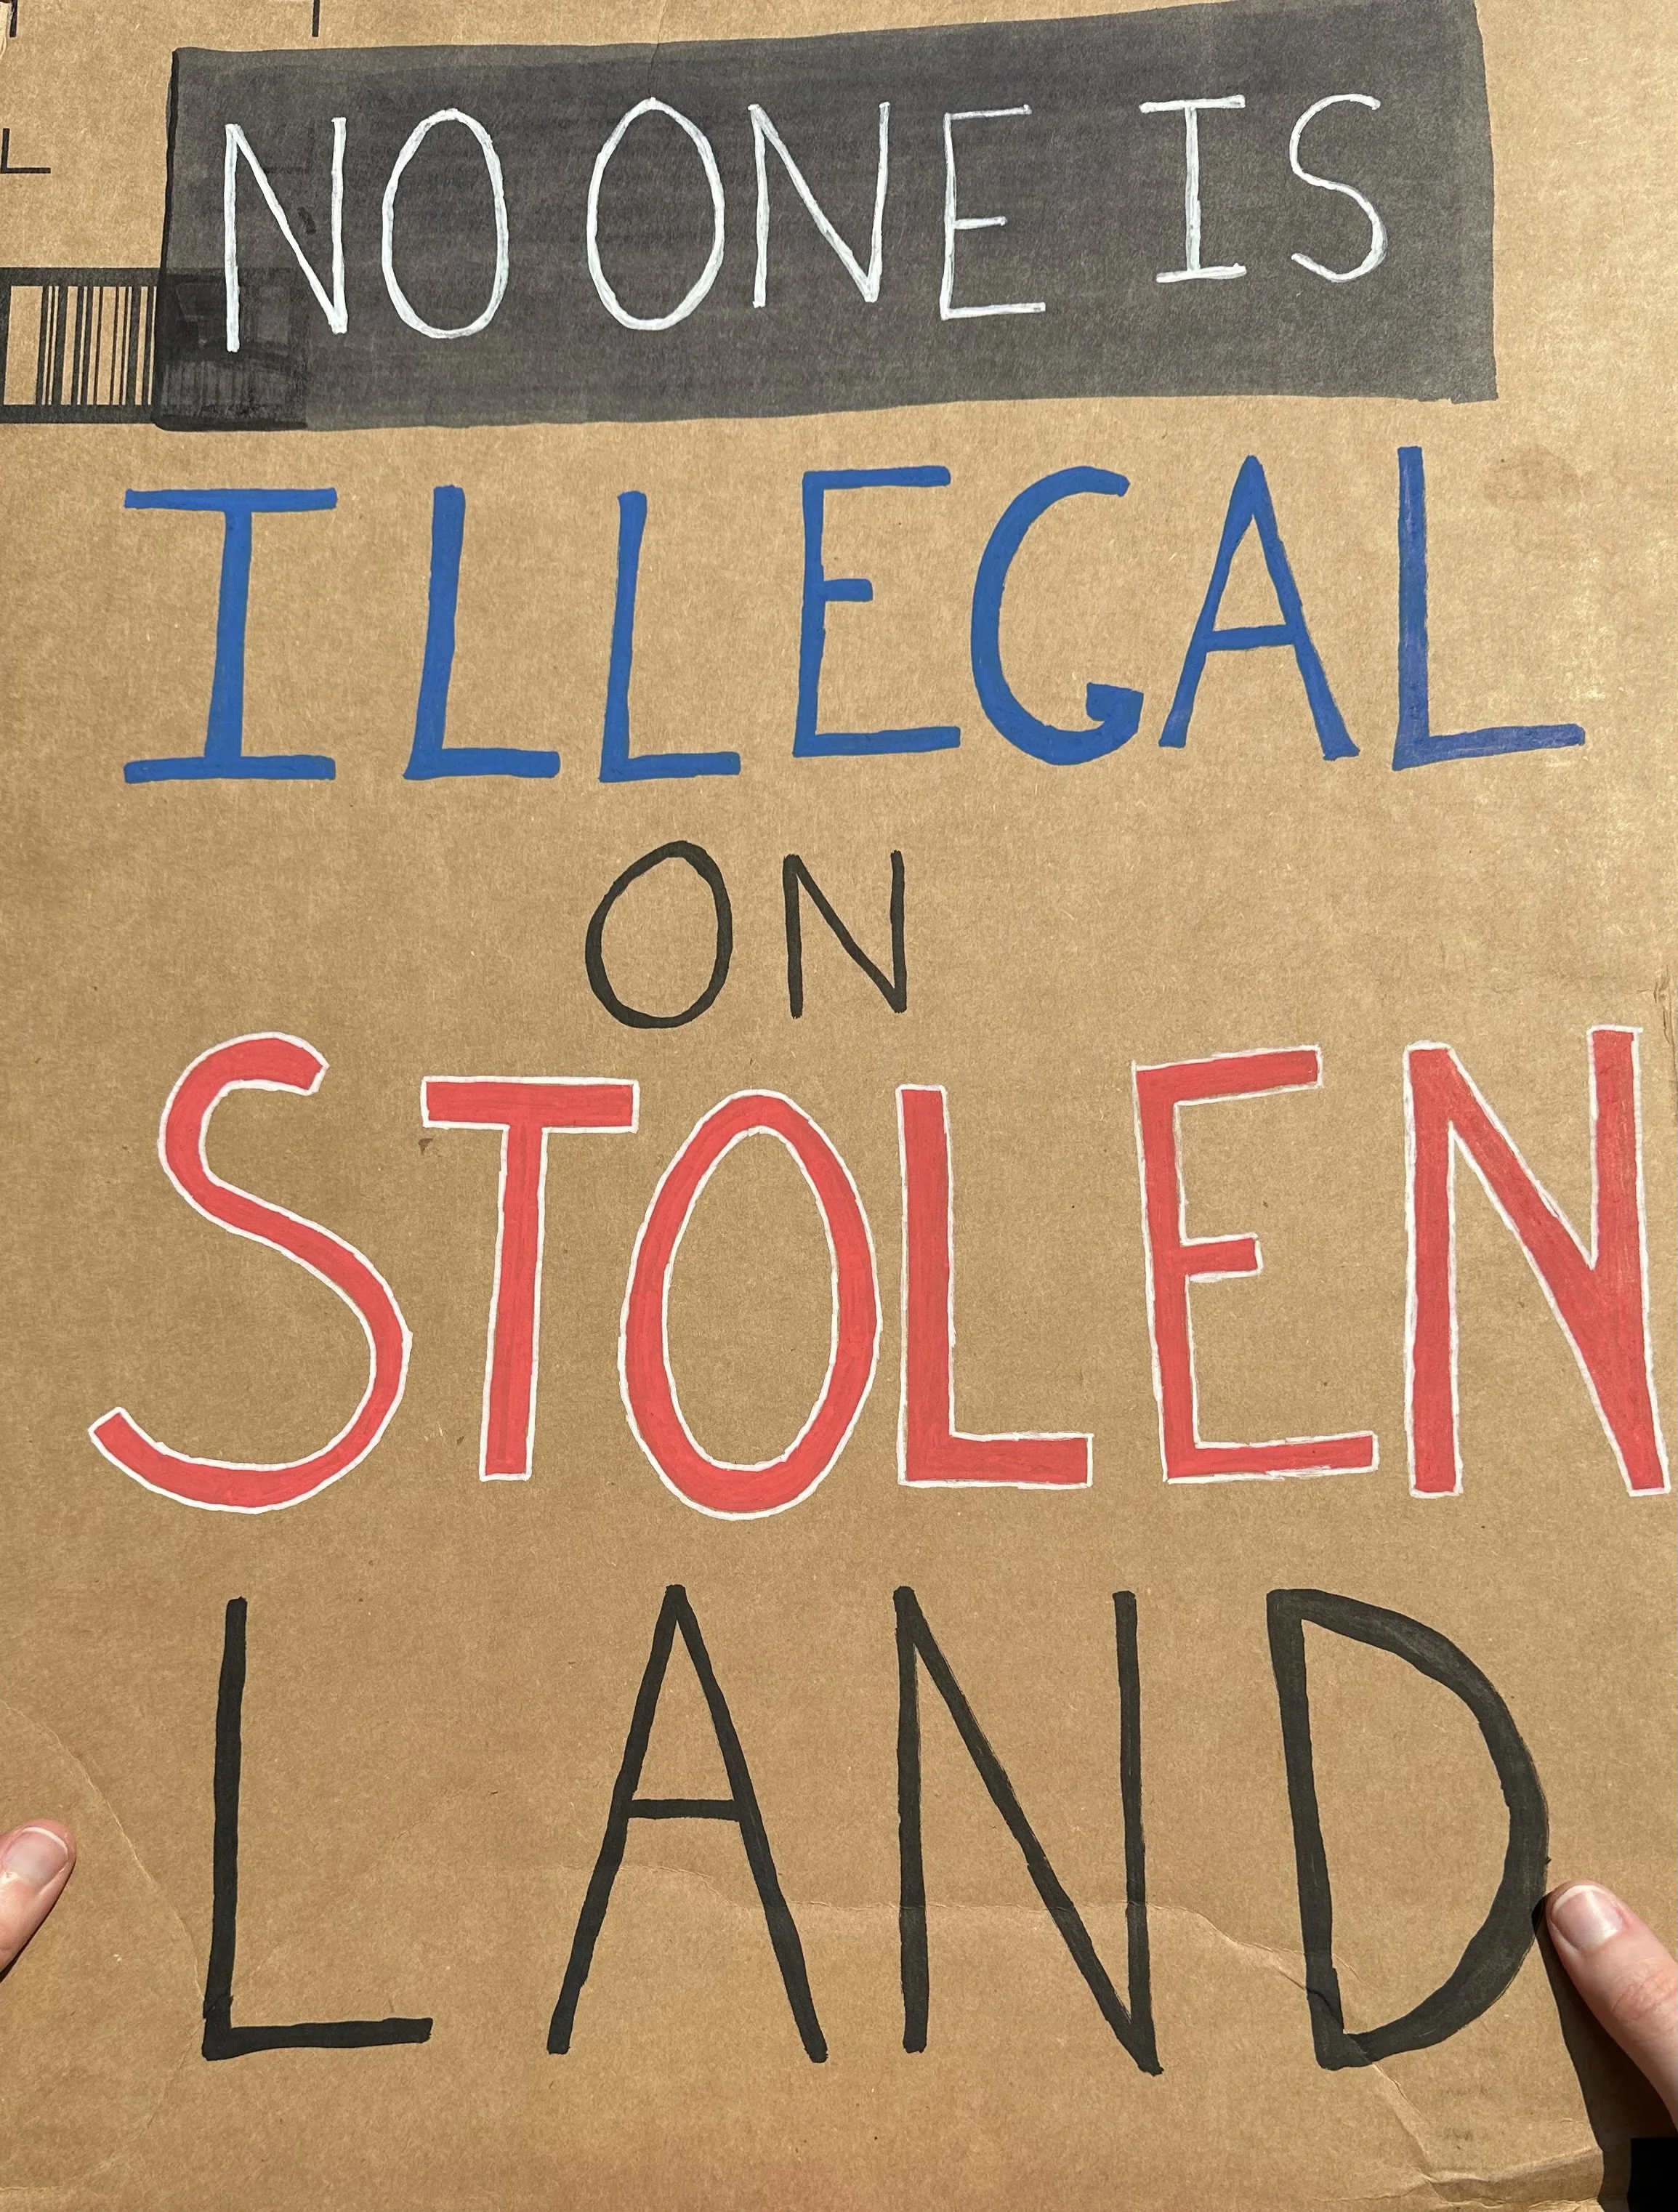 NO ONE IS
ILLEGAL
ON
STOLEN
LAND